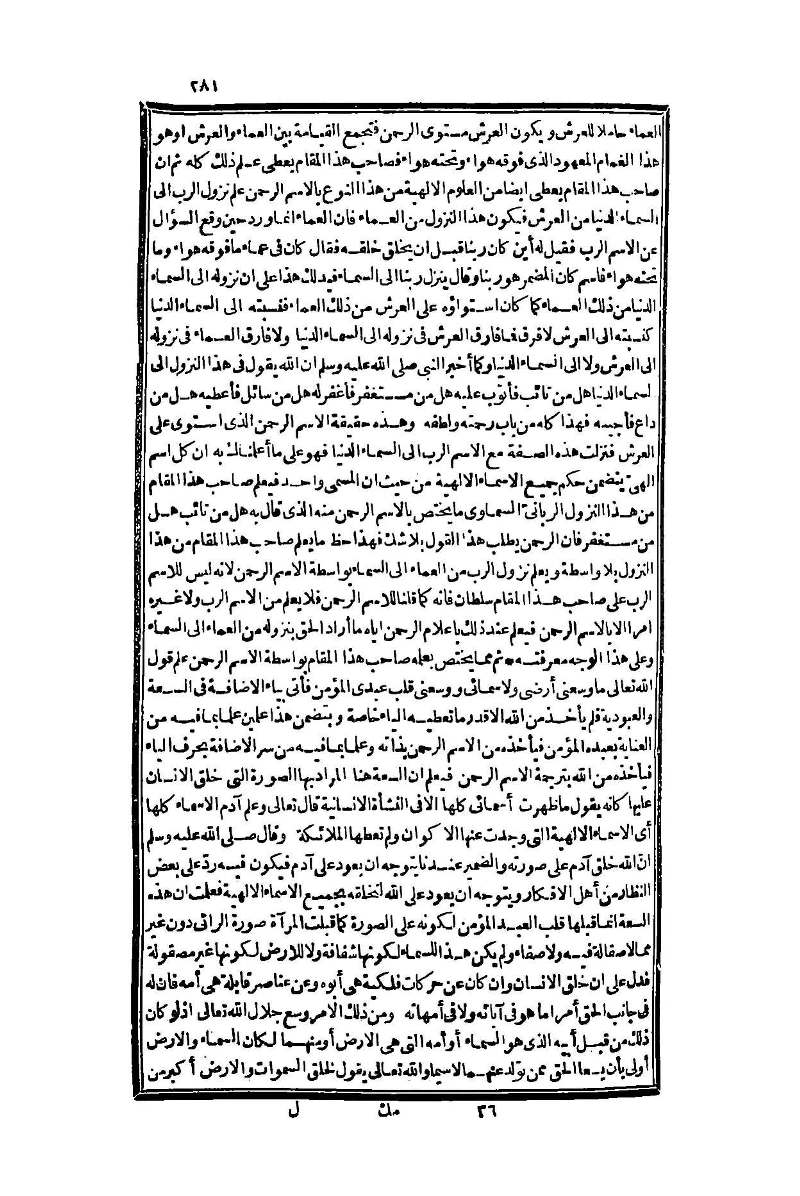 ٢٨١
العماء حاملا للعرش ويكون العرش مستوى الرحمن فتجمع القيامة بين العماء والعرش اوهو
هذا الغمام المعهود الذى فوقه هواء وتحته هواء فصاحب هذا المقام يعطى علم ذلك كله ثم ان
صاحب هذا المقام يعطى ايضا من العلوم الالهية من هذا النوع بالاسم الرحمن علم نزول الرب الى
السماء الدنيا من العرش فيكون هذا النزول من العماء فان العماء انما ورد حين وقع السؤال
عن الاسم الرب فقيل له أين كان ربنا قبل ان يخلق خلقه فقال كان فى عماء مافوقه هواء وما
تحته هواء فاسم كان المضمر هو ربنا وقال ينزل ربنا الى السماء فيدلك هذا على ان نزوله الى السماء
الدنيا من ذلك العماء كما كان استواؤه على العرش من ذلك العماء فنسبته الى السماء الدنيا
كنسبته الى العرش لافرق فافارق العرش فى نزوله الى السماء الدنيا ولا فارق العماء فى نزوله
الى العرش ولا الى السماء الدنيا وكما أخبر النبى صلى الله عليه وسلم ان الله يقول فى هذا النزول الى
السماء الدنيا هل من تائب فأتوب عليه هل من مستغفر فأغفرله هل من سائل فأعطيه هل من
داع فأجيبه فهذا كله من باب رحمته ولطفه وهذه حقيقة الاسم الرحمن الذى استوى على
العرش فنزلت هذه الصفة مع الاسم الرب الى السماء الدنيا فهو على ما أعلمناك به ان كل اسم
الهى يتضمن حكم جميع الاسماء الالهية من حيث ان المسمى واحد فيعلم صاحب هذا المقام
من هذا النزول الربانى السماوى ما يختص بالاسم الرحمن منه الذى قال به هل من تائب هل
من مستغفر فان الرحمن يطلب هذا القول بلا شك فهذا حظ ما يعلم صاحب هذا المقام من هذا
النزول بلا واسطة ويعلم نزول الرب من العماء الى السماء بواسطة الاسم الرحمن لانه ليس للاسم
الرب على صاحب هذا المقام سلطان فانه كما قلنا للاسم الرحمن فلا يعلم من الاسم الرب ولا غيره
امرا الا بالاسم الرحمن فيعلم عند ذلك باعلام الرحمن اياه ما أراد الحق بنزوله من العماء الى السماء
وعلى هذا الوجه معرفته ثم مما يختص بعلمه صاحب هذا المقام بواسطة الاسم الرحمن علم قول
الله تعالى ما وسعنى أرضى ولا سمائى ووسعنى قلب عبدى المؤمن فأتى بياء الاضافة فى السعة
والعبودية فلم يأخذ من الله الا قدر ما تعطيه الياء خاصة ويتضمن هذا علمين علما بما فيه من
العناية بعبده المؤمن فيأخذه من الاسم الرحمن بذاته وعلما بما فيه من سر الاضافة بحرف الياء
فيأخذه من الله بترجمة الاسم الرحمن فيعلم ان السعة هنا المراد بها الصورة التى خلق الانسان
عليها كانه يقول ما ظهرت أسمائى كلها الا فى النشأة الانسانية قال تعالى وعلم آدم الاسماء كلها
أى الاسماء الالهية التى وجدت عنها الاكوان ولم تعطها الملائكة وقال صلى الله عليه وسلم
ان الله خلق آدم على صورته والضمير عندنا يتوجه ان يعود على آدم فيكون فيه رد على بعض
النظار من أهل الافكار ويتوجه ان يعود على الله لتخلقه بجميع الاسماء الالهية فعلمت ان هذه
السعة انما قبلها قلب العبد المؤمن لكونه على الصورة كما قبلت المرآة صورة الرائى دون غير
مما لا صقالة فيه ولا صفاء ولم يكن هذا للسماء لكونها شفافة ولا للارض لكونها غير مصقولة
فدل على ان خلق الانسان وان كان عن حركات فلكية هى أبوه وعن عناصر قابلة هى أمه فان له
فى جانب الحق أمرا ما هو فى آبائه ولا فى أمهاته ومن ذلك الامر وسع جلال الله تعالى اذ لو كان
ذلك من قبل أبيه الذى هو السماء أو أمه التى هى الارض أو منهما لكان السماء والارض
أولى بأن يسعا الحق ممن تولد عنهما لاسيما والله تعالى يقول لخلق السموات والارض أكبر من
٣٦ مك ل